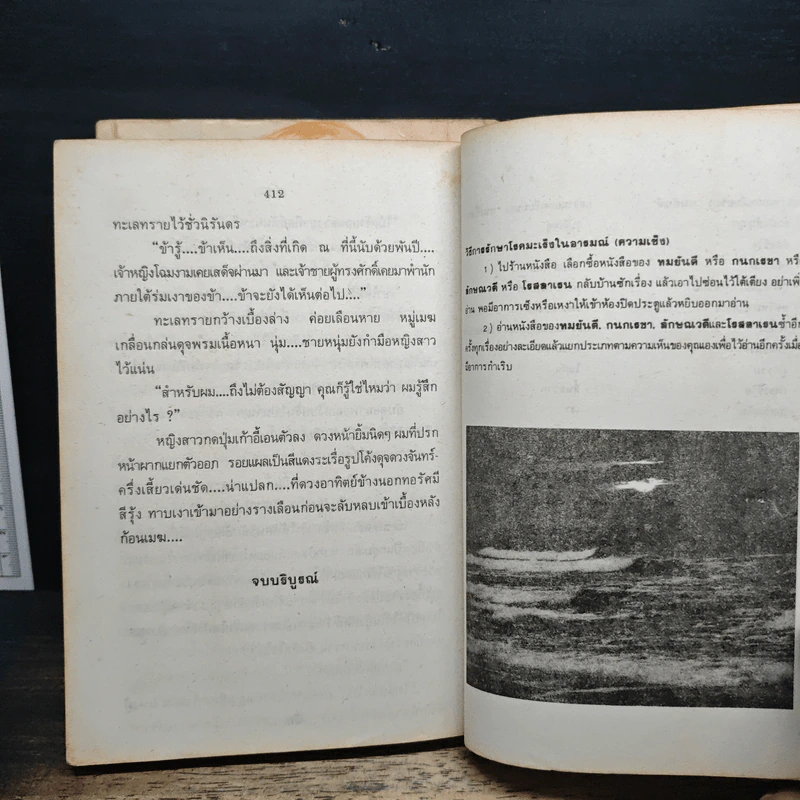 412
ทะเลทรายไว้ชั่วนิรันดร
"ข้ารู้....ข้าเห็น....ถึงสิ่งที่เกิด ณ ที่นี้นับด้วยพันปี....
เจ้าหญิงโฉมงามเคยเสด็จผ่านมา และเจ้าชายผู้ทรงศักดิ์เคยมาพำนัก
ภายใต้ร่มเงาของข้า....ข้าจะยังได้เห็นต่อไป...."
ทะเลทรายกว้างเบื้องล่าง ค่อยเลือนหาย หมู่เมฆ
เกลื่อนกล่นดุจพรมเนื้อหนา นุ่ม....ชายหนุ่มยังกำมือหญิงสาว
ไว้แน่น
"สำหรับผม....ถึงไม่ต้องสัญญา คุณก็รู้ใช่ไหมว่า ผมรู้สึก
อย่างไร ?"
หญิงสาวกดปุ่มเก้าอี้เอนตัวลง ดวงหน้ายิ้มนิดๆ ผมที่ปรก
หน้าผากแยกตัวออก รอยแผลเป็นสีแดงระเรื่อรูปโค้งดุจดวงจันทร์-
ครึ่งเสี้ยวเด่นชัด....น่าแปลก....ที่ดวงอาทิตย์ข้างนอกทอรัศมี
สีรุ้ง ทาบเงาเข้ามาอย่างรางเลือนก่อนจะลับหลบเข้าเบื้องหลัง
ก้อนเมฆ....
จบบริบูรณ์
วิธีการรักษาโรคมะเร็งในอารมณ์ (ความเซ็ง)
1) ไปร้านหนังสือ เลือกซื้อหนังสือของ ทมยันตี หรือ กนกเรขา หรือ
ลักษณวดี หรือ โรสลาเรน กลับบ้านซักเรื่อง แล้วเอาไปซ่อนไว้ใต้เตียง อย่าเพิ่ง
อ่าน พอมีอาการเซ็งหรือเหงาให้เข้าห้องปิดประตูแล้วหยิบออกมาอ่าน
2) อ่านหนังสือของทมยันตี, กนกเรขา, ลักษณวดีและโรสลาเรนซ้ำอีก
ครั้งทุกเรื่องอย่างละเอียดแล้วแยกประเภทตามความเห็นของคุณเองเพื่อไว้อ่านอีกครั้งเมื่อ
มีอาการกำเริบ